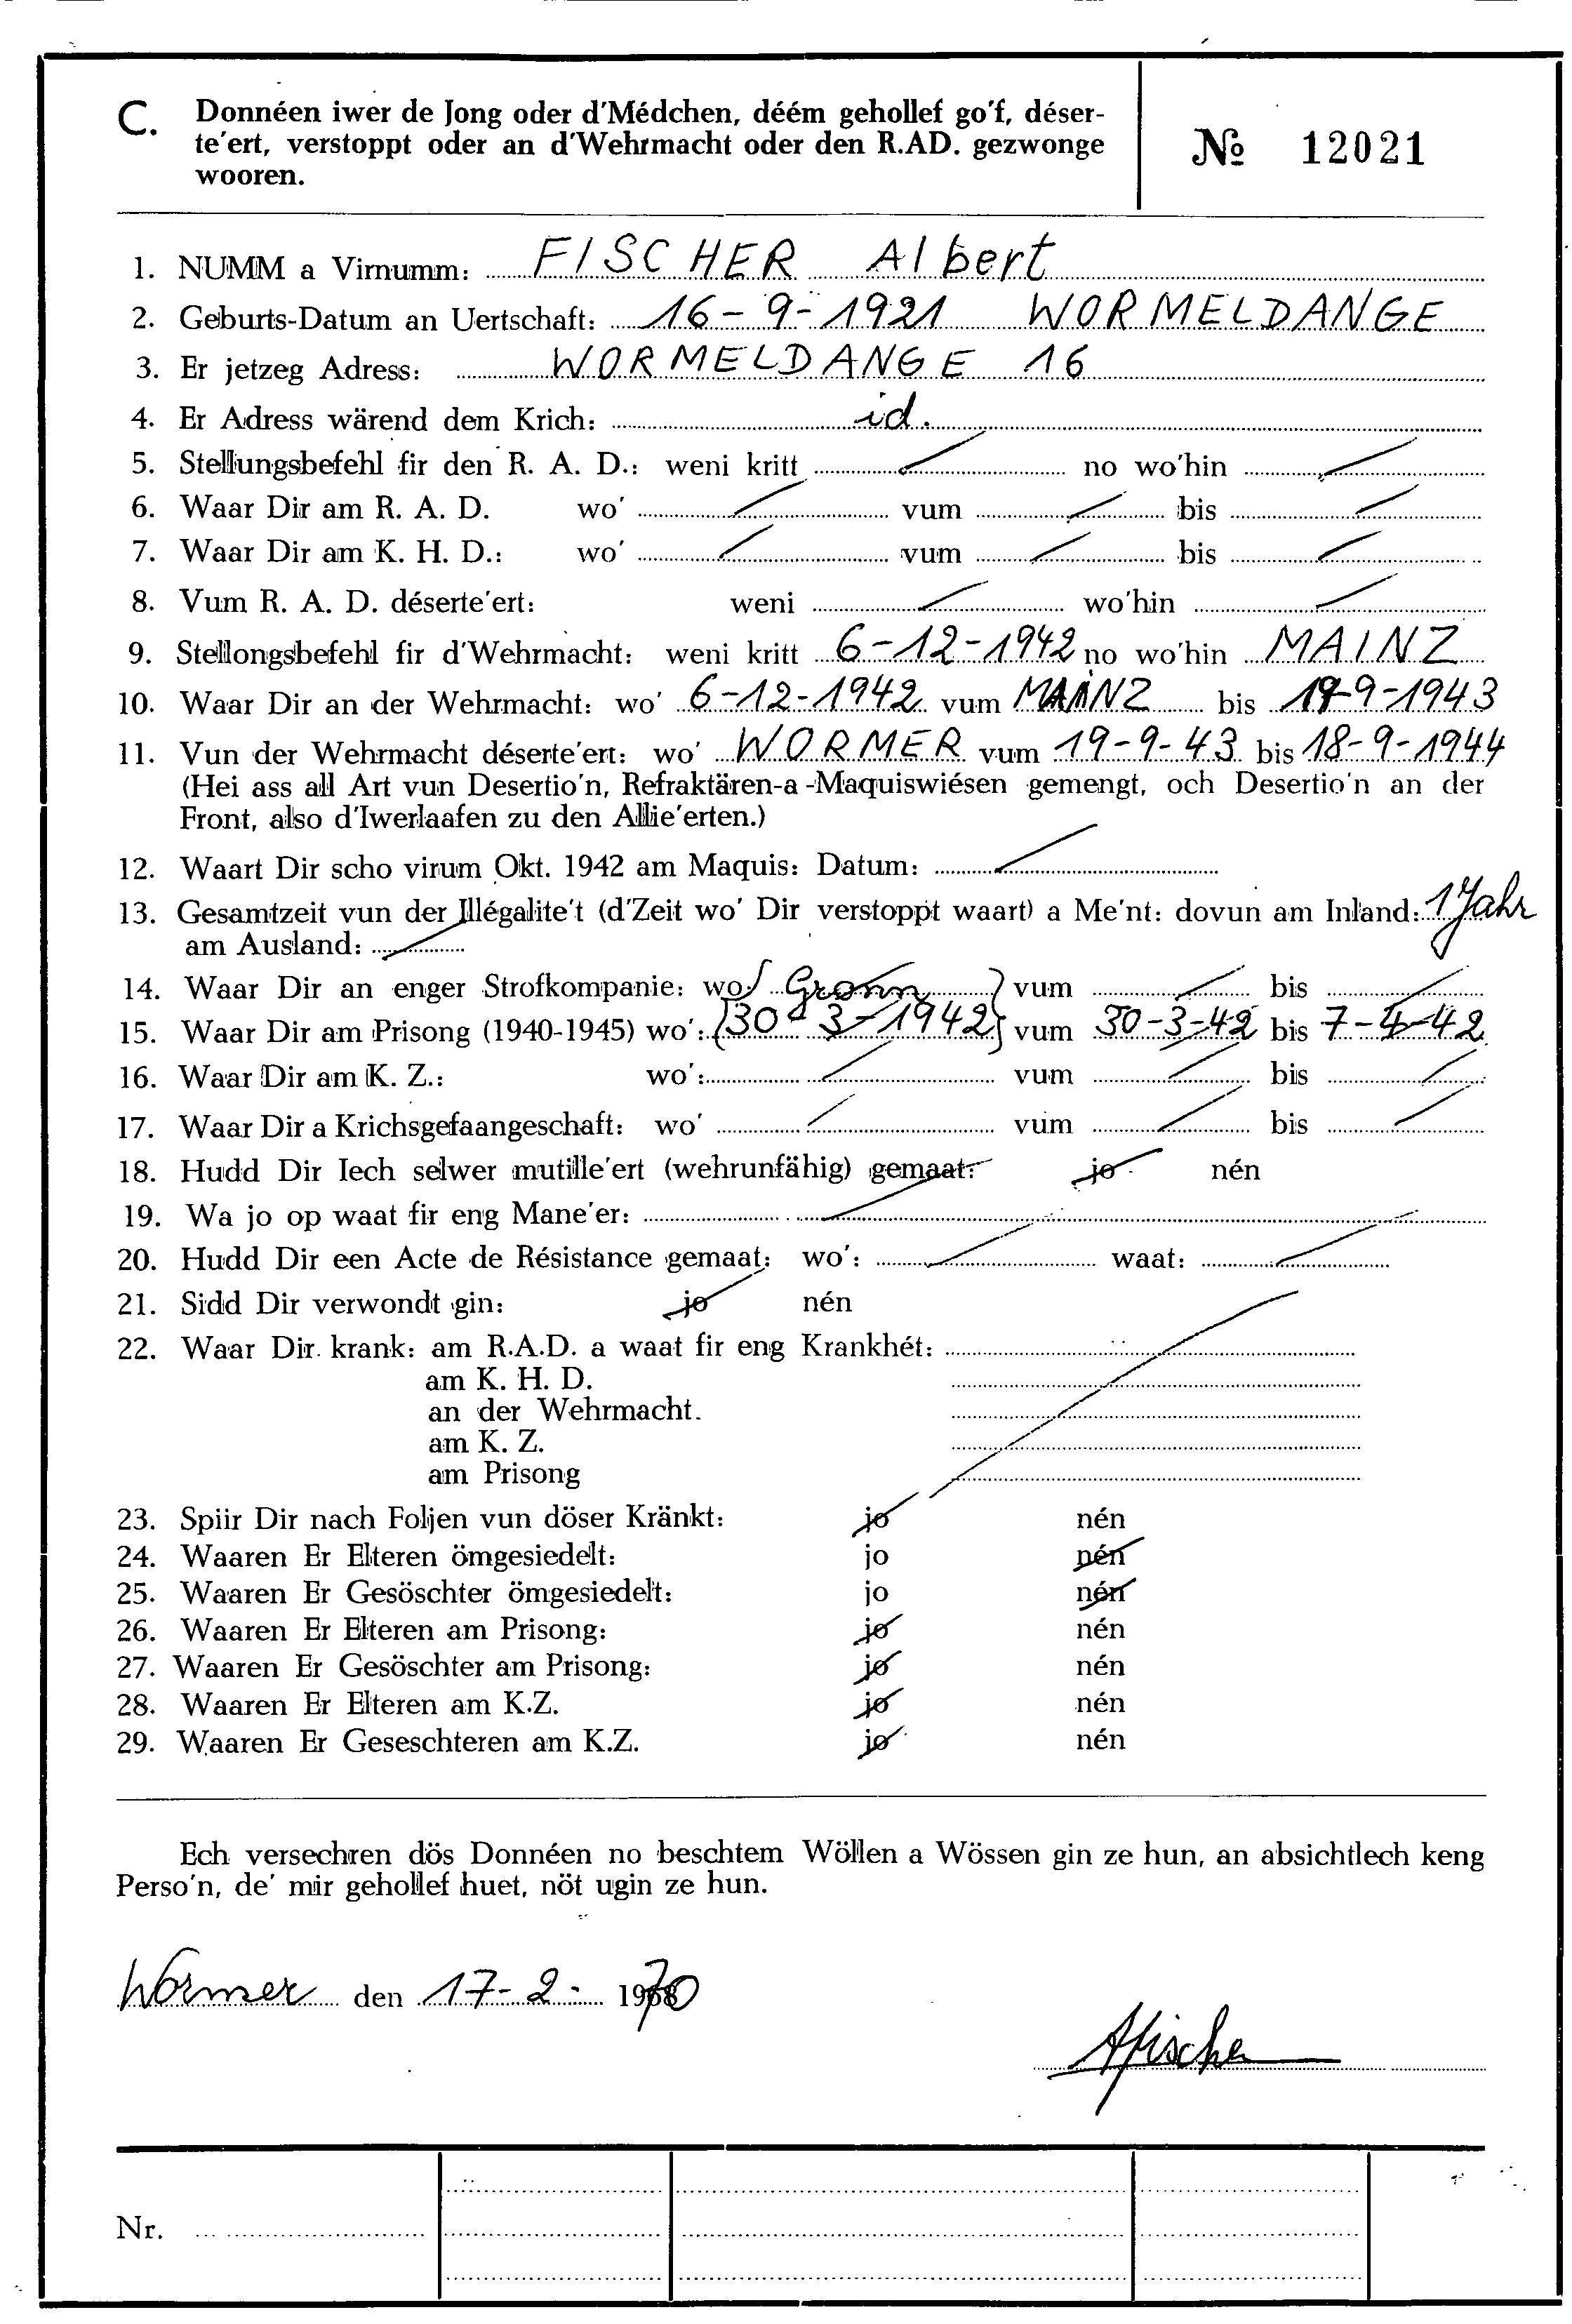 C. Donnéen iwer de Jong oder d'Médchen, déém gehollef go'f, déser-
te'ert, verstoppt oder an d'Wehrmacht oder den R.AD. gezwonge
wooren.
№ 12021
1. NUMM a Virnumm: FISCHER Albert
2. Geburts-Datum an Uertschaft: 16-9-1921 WORMELDANGE
3. Er jetzeg Adress: WORMELDANGE 16
4. Er Adress wärend dem Krich: id.
5. Stellungsbefehl fir den R. A. D.: weni kritt no wo'hin
6. Waar Dir am R. A. D. wo' vum bis
7. Waar Dir am K. H. D.: wo' vum bis
8. Vum R. A. D. déserte'ert: weni wo'hin
9. Stellongsbefehl fir d'Wehrmacht: weni kritt 6-12-1942 no wo'hin MAINZ
10. Waar Dir an der Wehrmacht: wo' 6-12-1942 vum MAINZ bis 19-9-1943
11. Vun der Wehrmacht déserte'ert: wo' WORMER vum 19-9-43 bis 18-9-1944
(Hei ass all Art vun Desertio'n, Refraktären-a-Maquiswiésen gemengt, och Desertio'n an der
Front, also d'Iwerlaafen zu den Allie'erten.)
12. Waart Dir scho virum Okt. 1942 am Maquis: Datum:
13. Gesamtzeit vun der Illégalite't (d'Zeit wo' Dir verstoppt waart) a Me'nt: dovun am Inland: 1 Jahr
am Ausland:
14. Waar Dir an enger Strofkompanie: wo: vum bis
15. Waar Dir am Prisong (1940-1945) wo': 30-3-1942 vum 30-3-42 bis 7-4-42
16. Waar Dir am K. Z.: wo': vum bis
17. Waar Dir a Krichsgefaangeschaft: wo' vum bis
18. Hudd Dir Iech selwer mutille'ert (wehrunfähig) gemaat: jo nén
19. Wa jo op waat fir eng Mane'er:
20. Hudd Dir een Acte de Résistance gemaat: wo': waat:
21. Sidd Dir verwondt gin: jo nén
22. Waar Dir krank: am R.A.D. a waat fir eng Krankhét:
am K. H. D.
an der Wehrmacht.
am K. Z.
am Prisong
23. Spiir Dir nach Foljen vun döser Kränkt: jo nén
24. Waaren Er Elteren ömgesiedelt: jo nén
25. Waaren Er Gesöschter ömgesiedelt: jo nén
26. Waaren Er Elteren am Prisong: jo nén
27. Waaren Er Gesöschter am Prisong: jo nén
28. Waaren Er Elteren am K.Z. jo nén
29. Waaren Er Geseschteren am K.Z. jo nén
Ech versechren dös Donnéen no beschtem Wöllen a Wössen gin ze hun, an absichtlech keng
Perso'n, de' mir gehollef huet, nöt ugin ze hun.
Wormer den 17-2- 1970
AFischer
Nr.